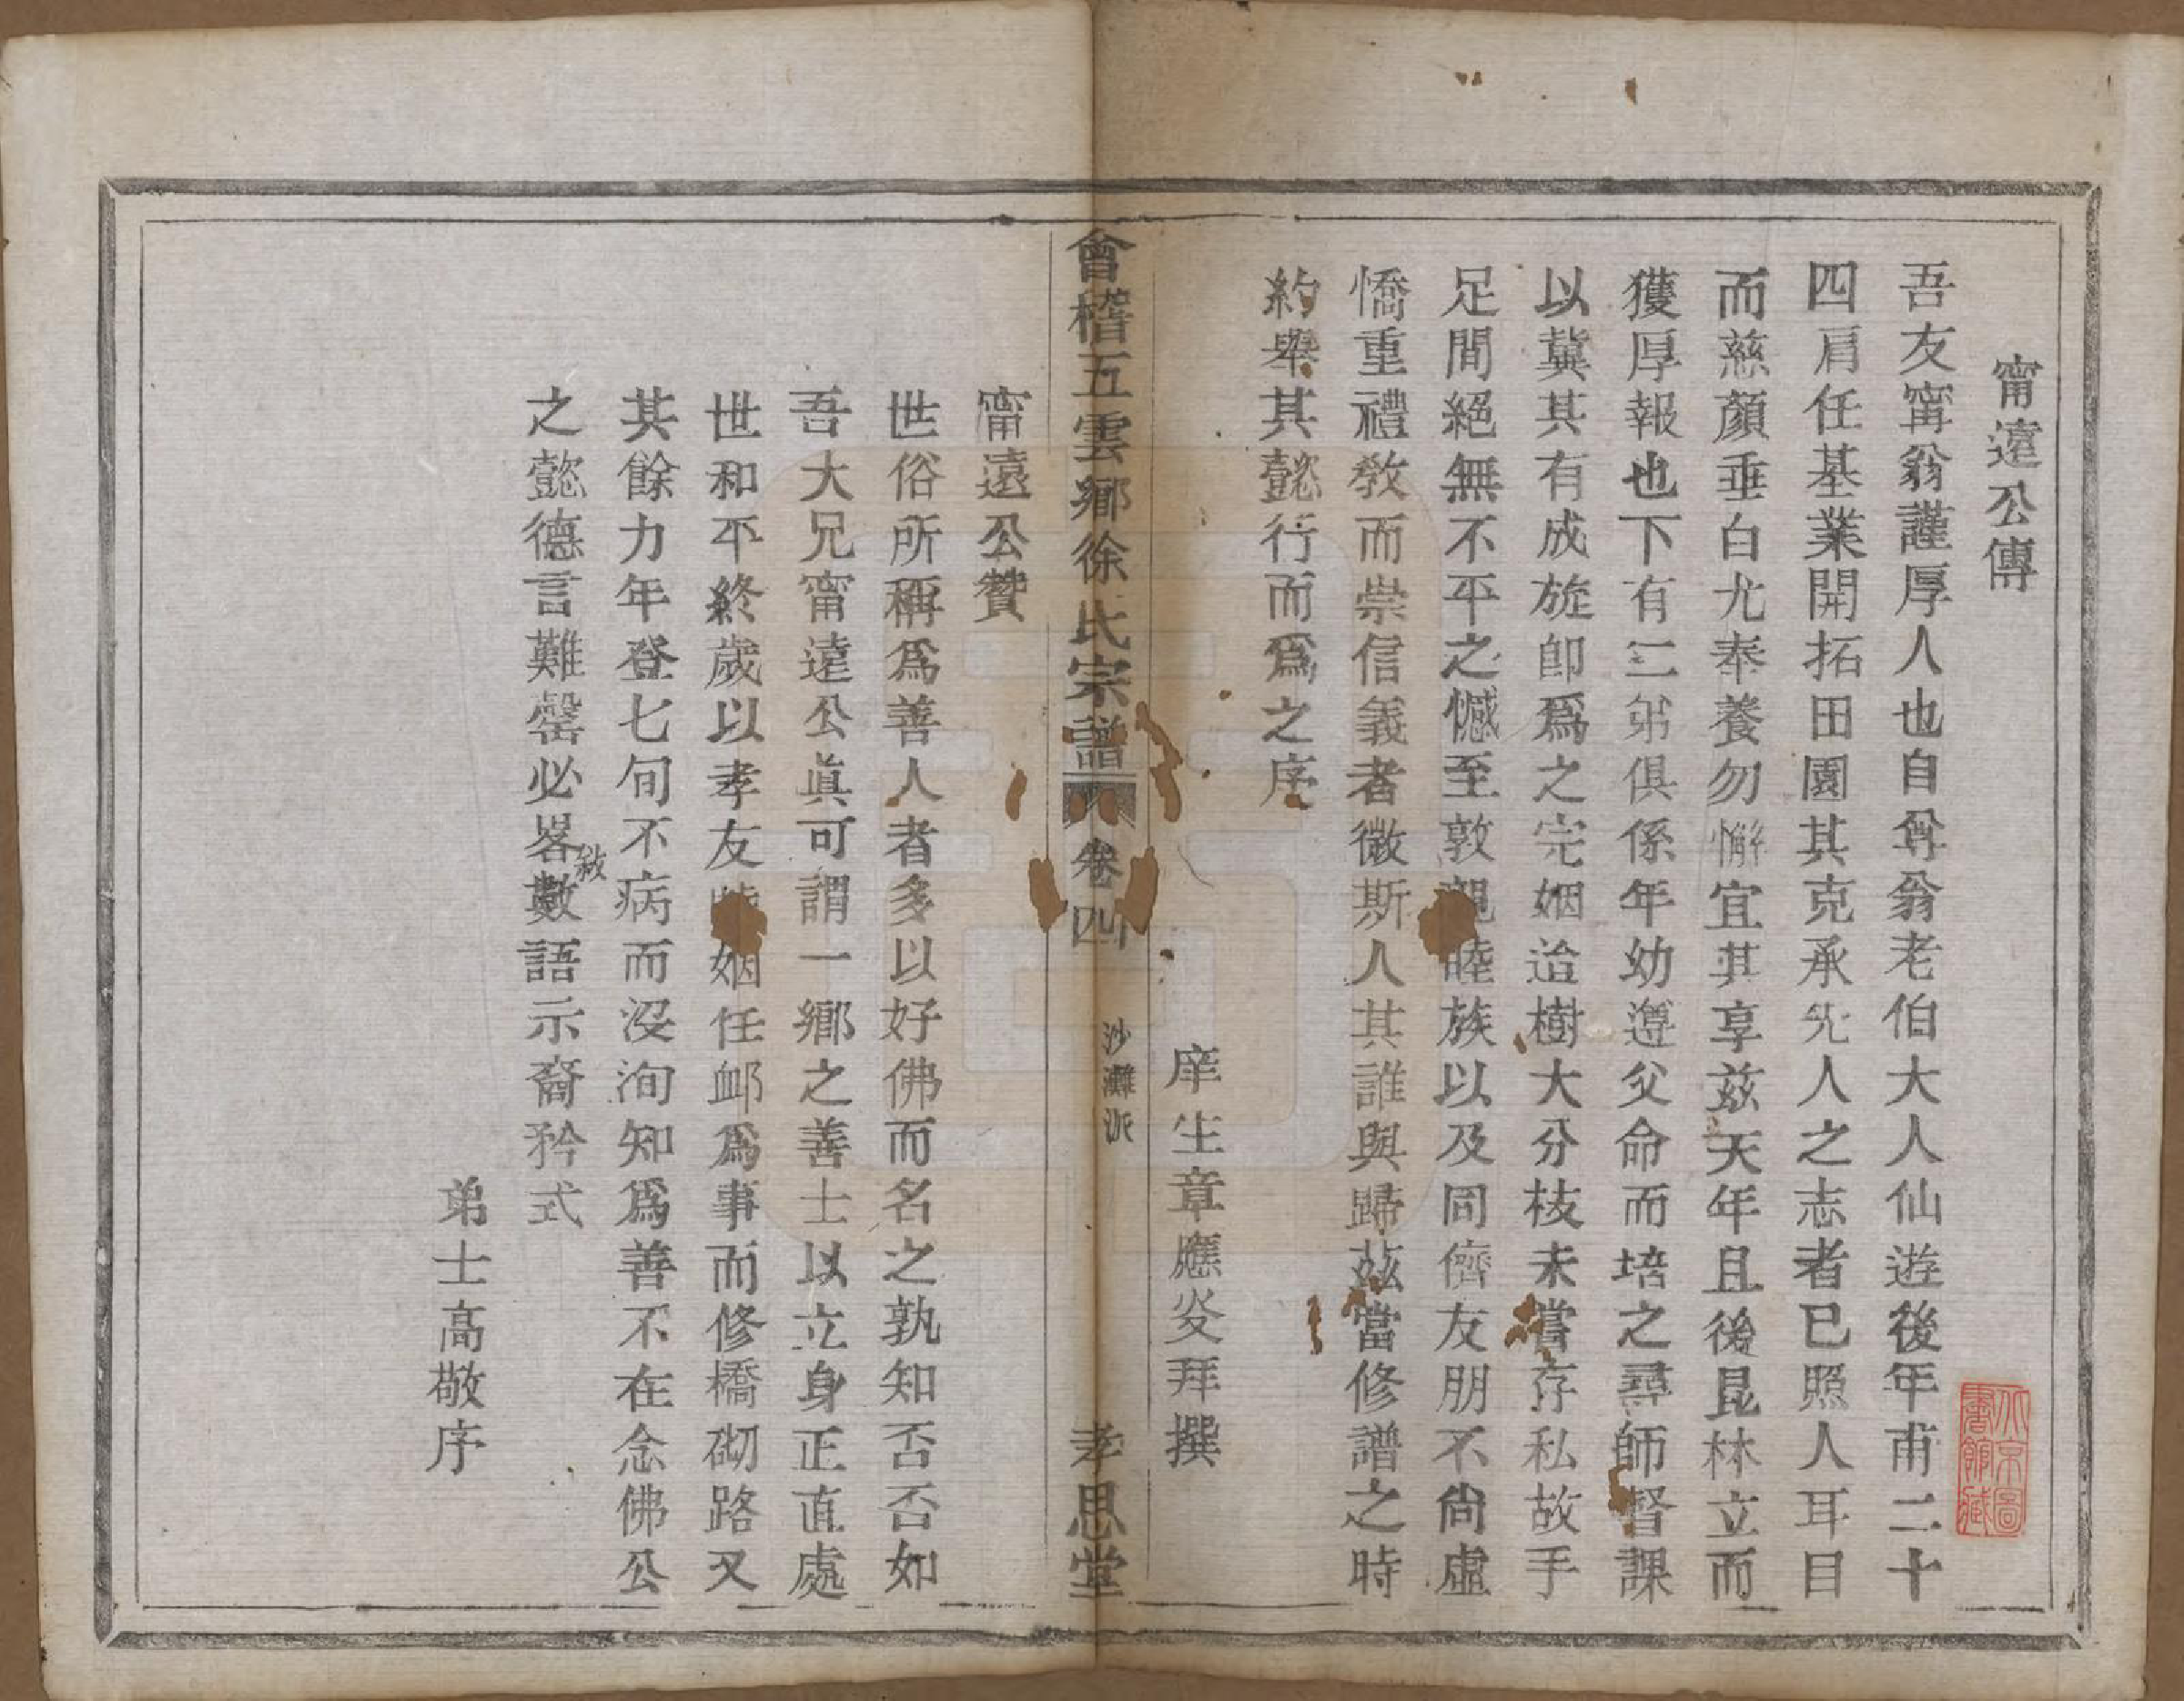 甯遠公傳
吾友甯翁謹厚人也自尊翁老伯大人仙遊後年甫二十
四肩任基業開拓田園其克承先人之志者已照人耳目
而慈顏垂白尤奉養勿懈宜其享茲天年且後昆林立而
獲厚報也下有二弟俱係年幼遵父命而培之尋師督課
以冀其有成旋卽爲之完姻迨樹大分枝未嘗存私故手
足間絕無不平之憾至敦親睦族以及同儕友朋不尙虛
憍重禮敎而崇信義者微斯人其誰與歸茲當修譜之時
約舉其懿行而爲之序
庠生章應炎拜撰
會稽五雲鄉徐氏宗譜 卷四 沙灘派 孝思堂
甯遠公贊
世俗所稱爲善人者多以好佛而名之孰知否否如
吾大兄甯遠公眞可謂一鄉之善士以立身正直處
世和平終歲以孝友姻任卹爲事而修橋砌路又
其餘力年登七旬不病而沒洵知爲善不在念佛公
之懿德言難罄必畧敍數語示裔矜式
弟士高敬序
北京圖
書館藏